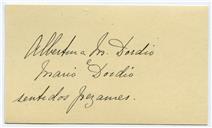 Albertina M. Dordio
e
Mario Dordio
sentidos pezames.